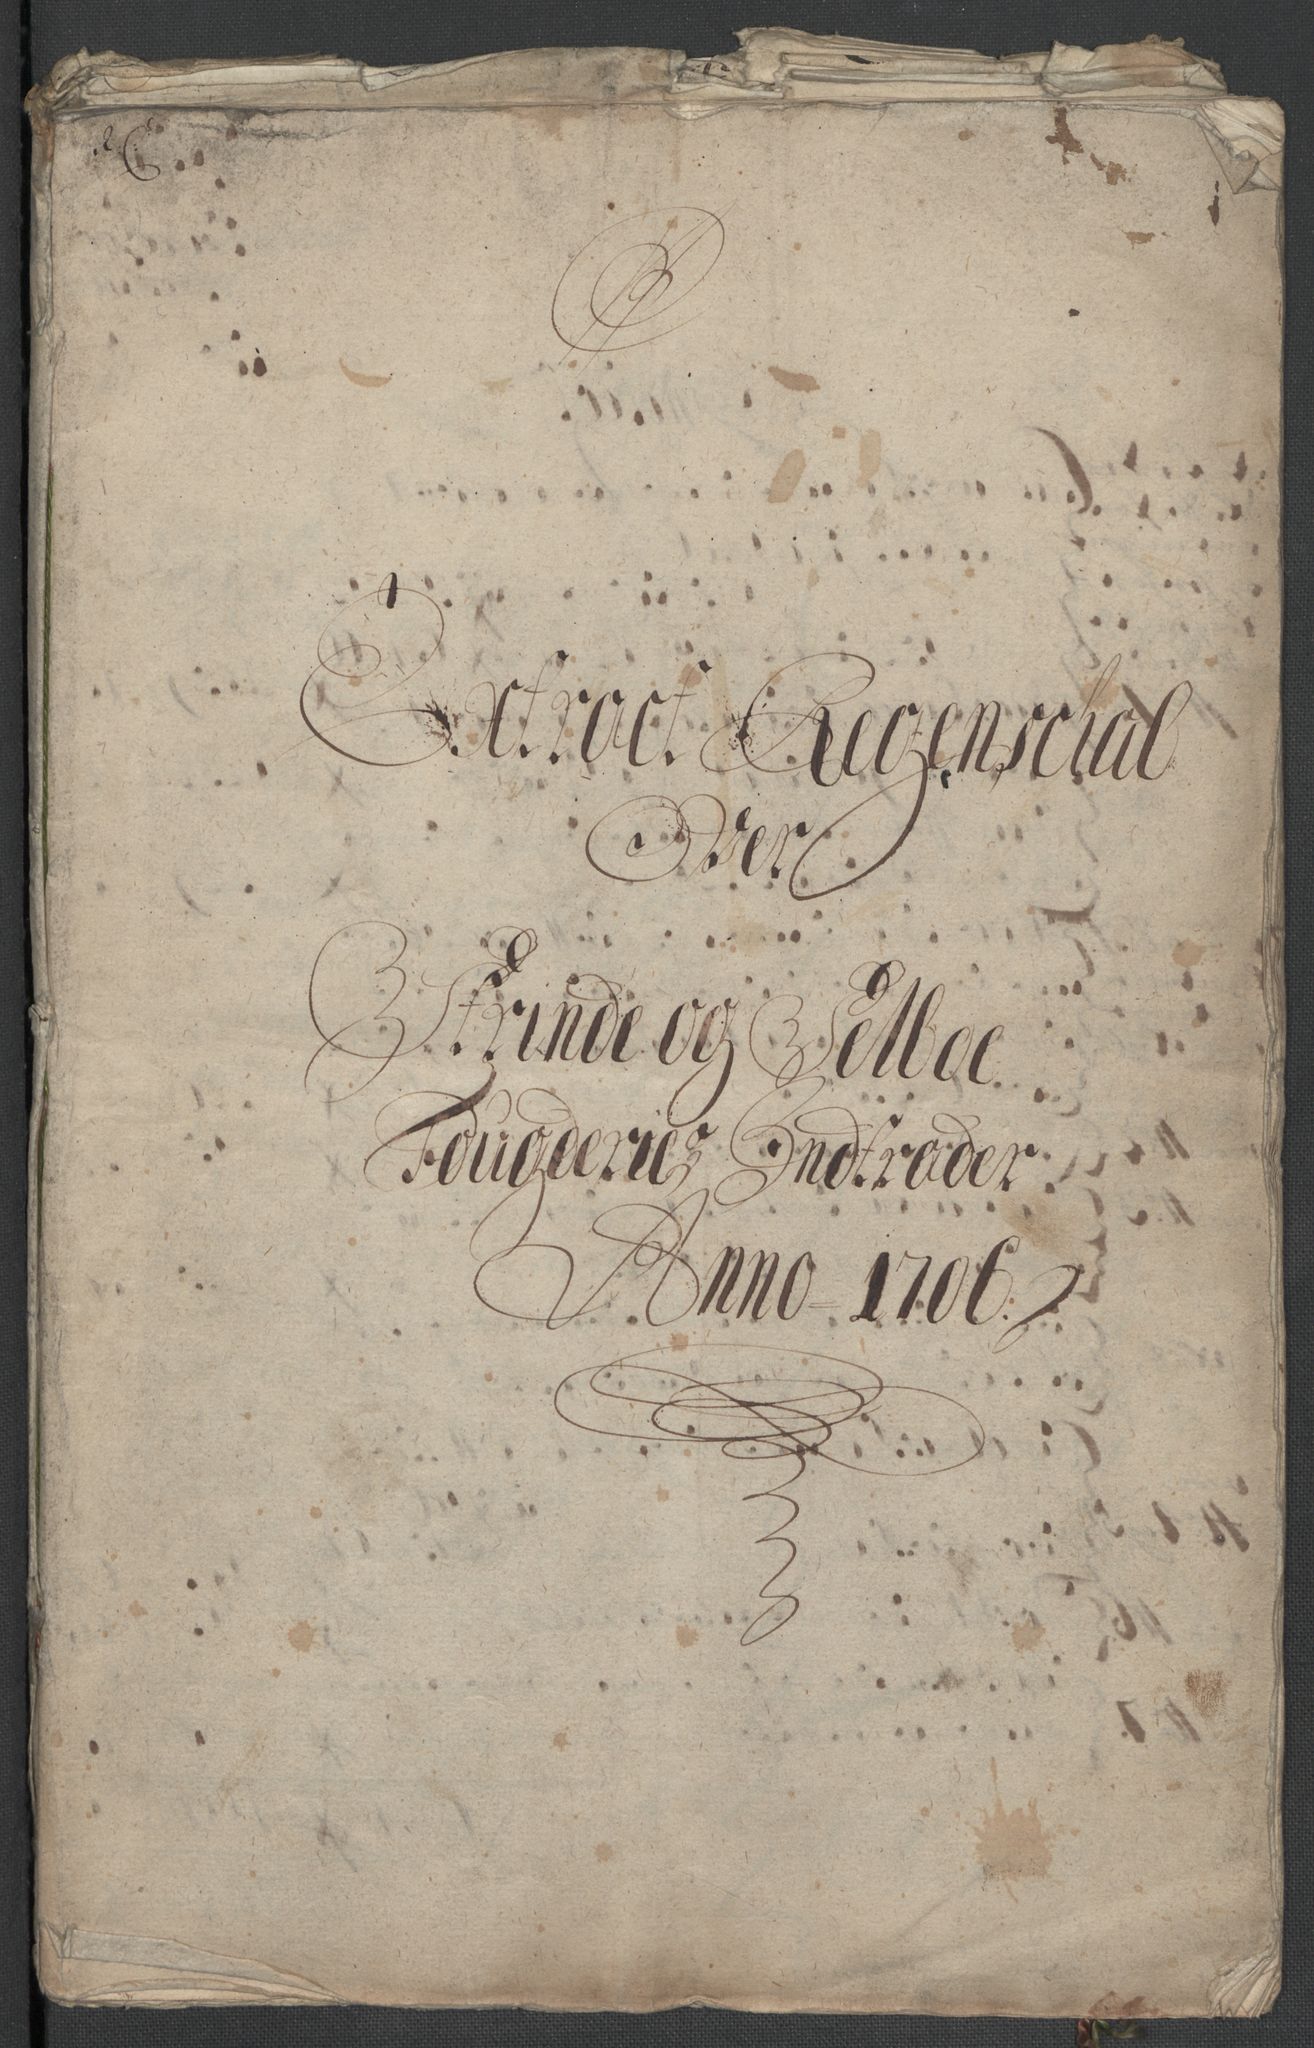 Extract Regenschab
Over
Strinde og Selboe
Fougderies Indtrader
Anno 1706